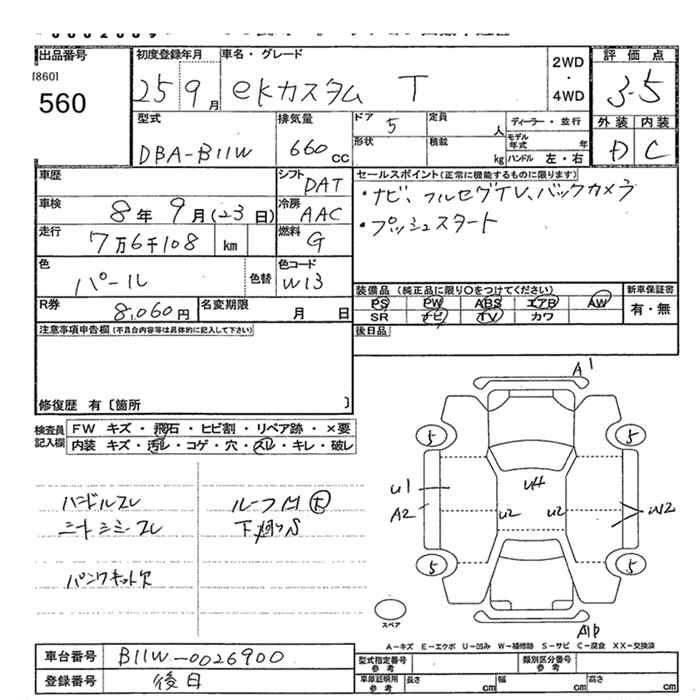 出品番号
[860]
560
初度登録年月
25 9月
車名・グレード
ekカスタム T
2WD
・
4WD
評価点
3.5
外装 内装
D C
型式
DBA-B11W
排気量
660cc
ドア 5
形状
定員 人
積載 kg
ディーラー・並行
モデル年式 年
ハンドル 左・右
車歴
車検
8年9月(23日)
走行
7万6千108 km
色
パール
色替
シフト DAT
冷房 AAC
燃料 G
色コード W13
セールスポイント(正常に機能するものに限ります)
・ナビ、フルセグTV、バックカメラ
・プッシュスタート
装備品(純正品に限り○をつけてください)
PS PW ABS エアB AW
SR ナビ TV カワ
新車保証書
有・無
後日品
R券
8,060円
名変期限 月 日
注意事項申告欄(不具合内容等は具体的に記入して下さい)
修復歴 有〔箇所 〕
検査員記入欄
FW キズ・飛石・ヒビ割・リペア跡・×要
内装 キズ・汚レ・コゲ・穴・スレ・キレ・破レ
ハンドルスレ
シートシミ・スレ
パンクキット欠
ルーフM
下廻りS
A1
5 5
U1
A2
U4
U2 U2
W2
5 5
スペア
A1P
A-キズ E-エクボ U-凹み W-補修跡 S-サビ C-腐食 XX-交換済
車台番号
B11W-0026900
登録番号
後日
型式指定番号 参考
類別区分番号 参考
車庫証明用 参考
長さ cm
幅 cm
高さ cm